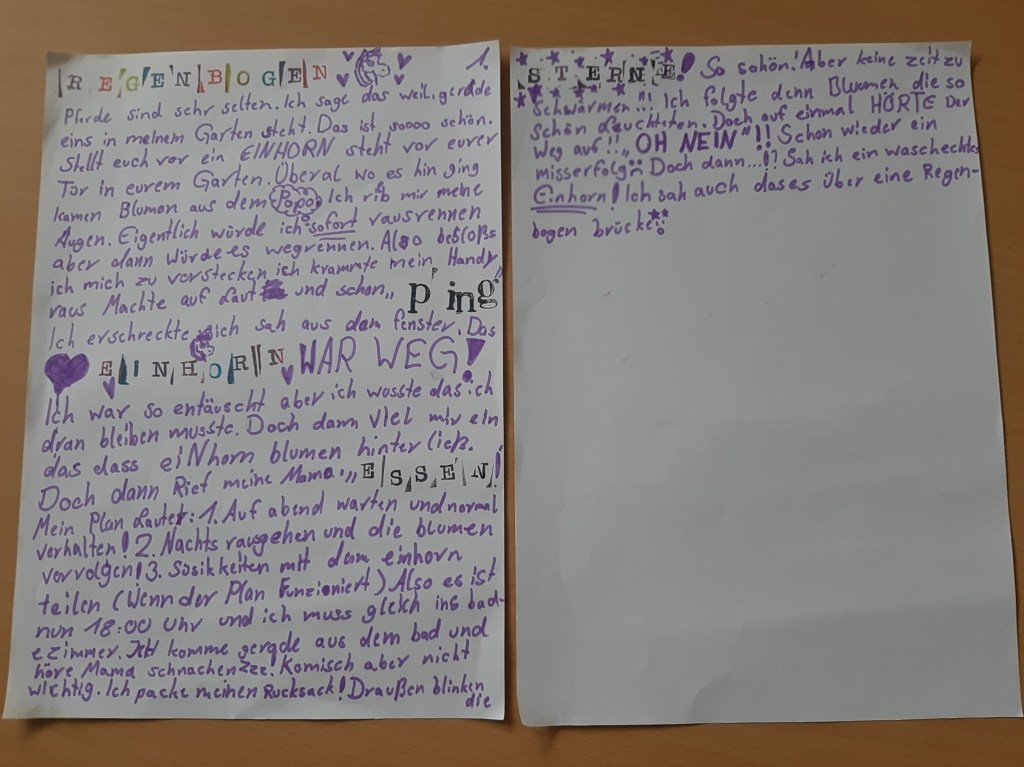 REGENBOGEN 1.
Pferde sind sehr selten. Ich sage das weil, gerade
eins in meinem Garten steht. Das ist soooo schön.
Stellt euch vor ein EINHORN steht vor eurer
Tür in eurem Garten. Überal wo es hin ging
kamen Blumen aus dem Popo. Ich rib mir meine
Augen. Eigentlich würde ich sofort rausrennen
aber dann würde es wegrennen. Also beschloßs
ich mich zu verstecken ich krammte mein Handy
raus Machte auf Laut und schon „Ping"
Ich erschreckte mich sah aus dem fenster. Das
EINHORN WAR WEG!
Ich war so entäuscht aber ich wusste das ich
dran bleiben musste. Doch dann viel mir ein
das dass eiNhorn blumen hinter ließ.
Doch dann Rief meine Mama „ESSEN!
Mein Plan Lautet: 1. Auf abend warten und normal
verhalten! 2. Nachts rausgehen und die blumen
vorvolgen! 3. Süsikkeiten mit dem einhorn
teilen (Wenn der Plan Funzioniert) Also es ist
nun 18:00 Uhr und ich muss gleich ins bad-
ezimmer. ICH komme gerade aus dem bad und
höre Mama schnachenzzz. Komisch aber nicht
wichtig. Ich packe meinen Rucksack! Draußen blinken
die
STERNE! So schön! Aber keine zeit zu
Schwärmen"!! Ich folgte denn Bluumen die so
schön Leuchteten. Doch auf einmal HÖRTE Der
Weg auf!! „OH NEIN"!! Schon wieder ein
misserfolg Doch dann...!? Sah ich ein waschechtes
Einhorn! Ich sah auch dases über eine Regen-
bogen brücke